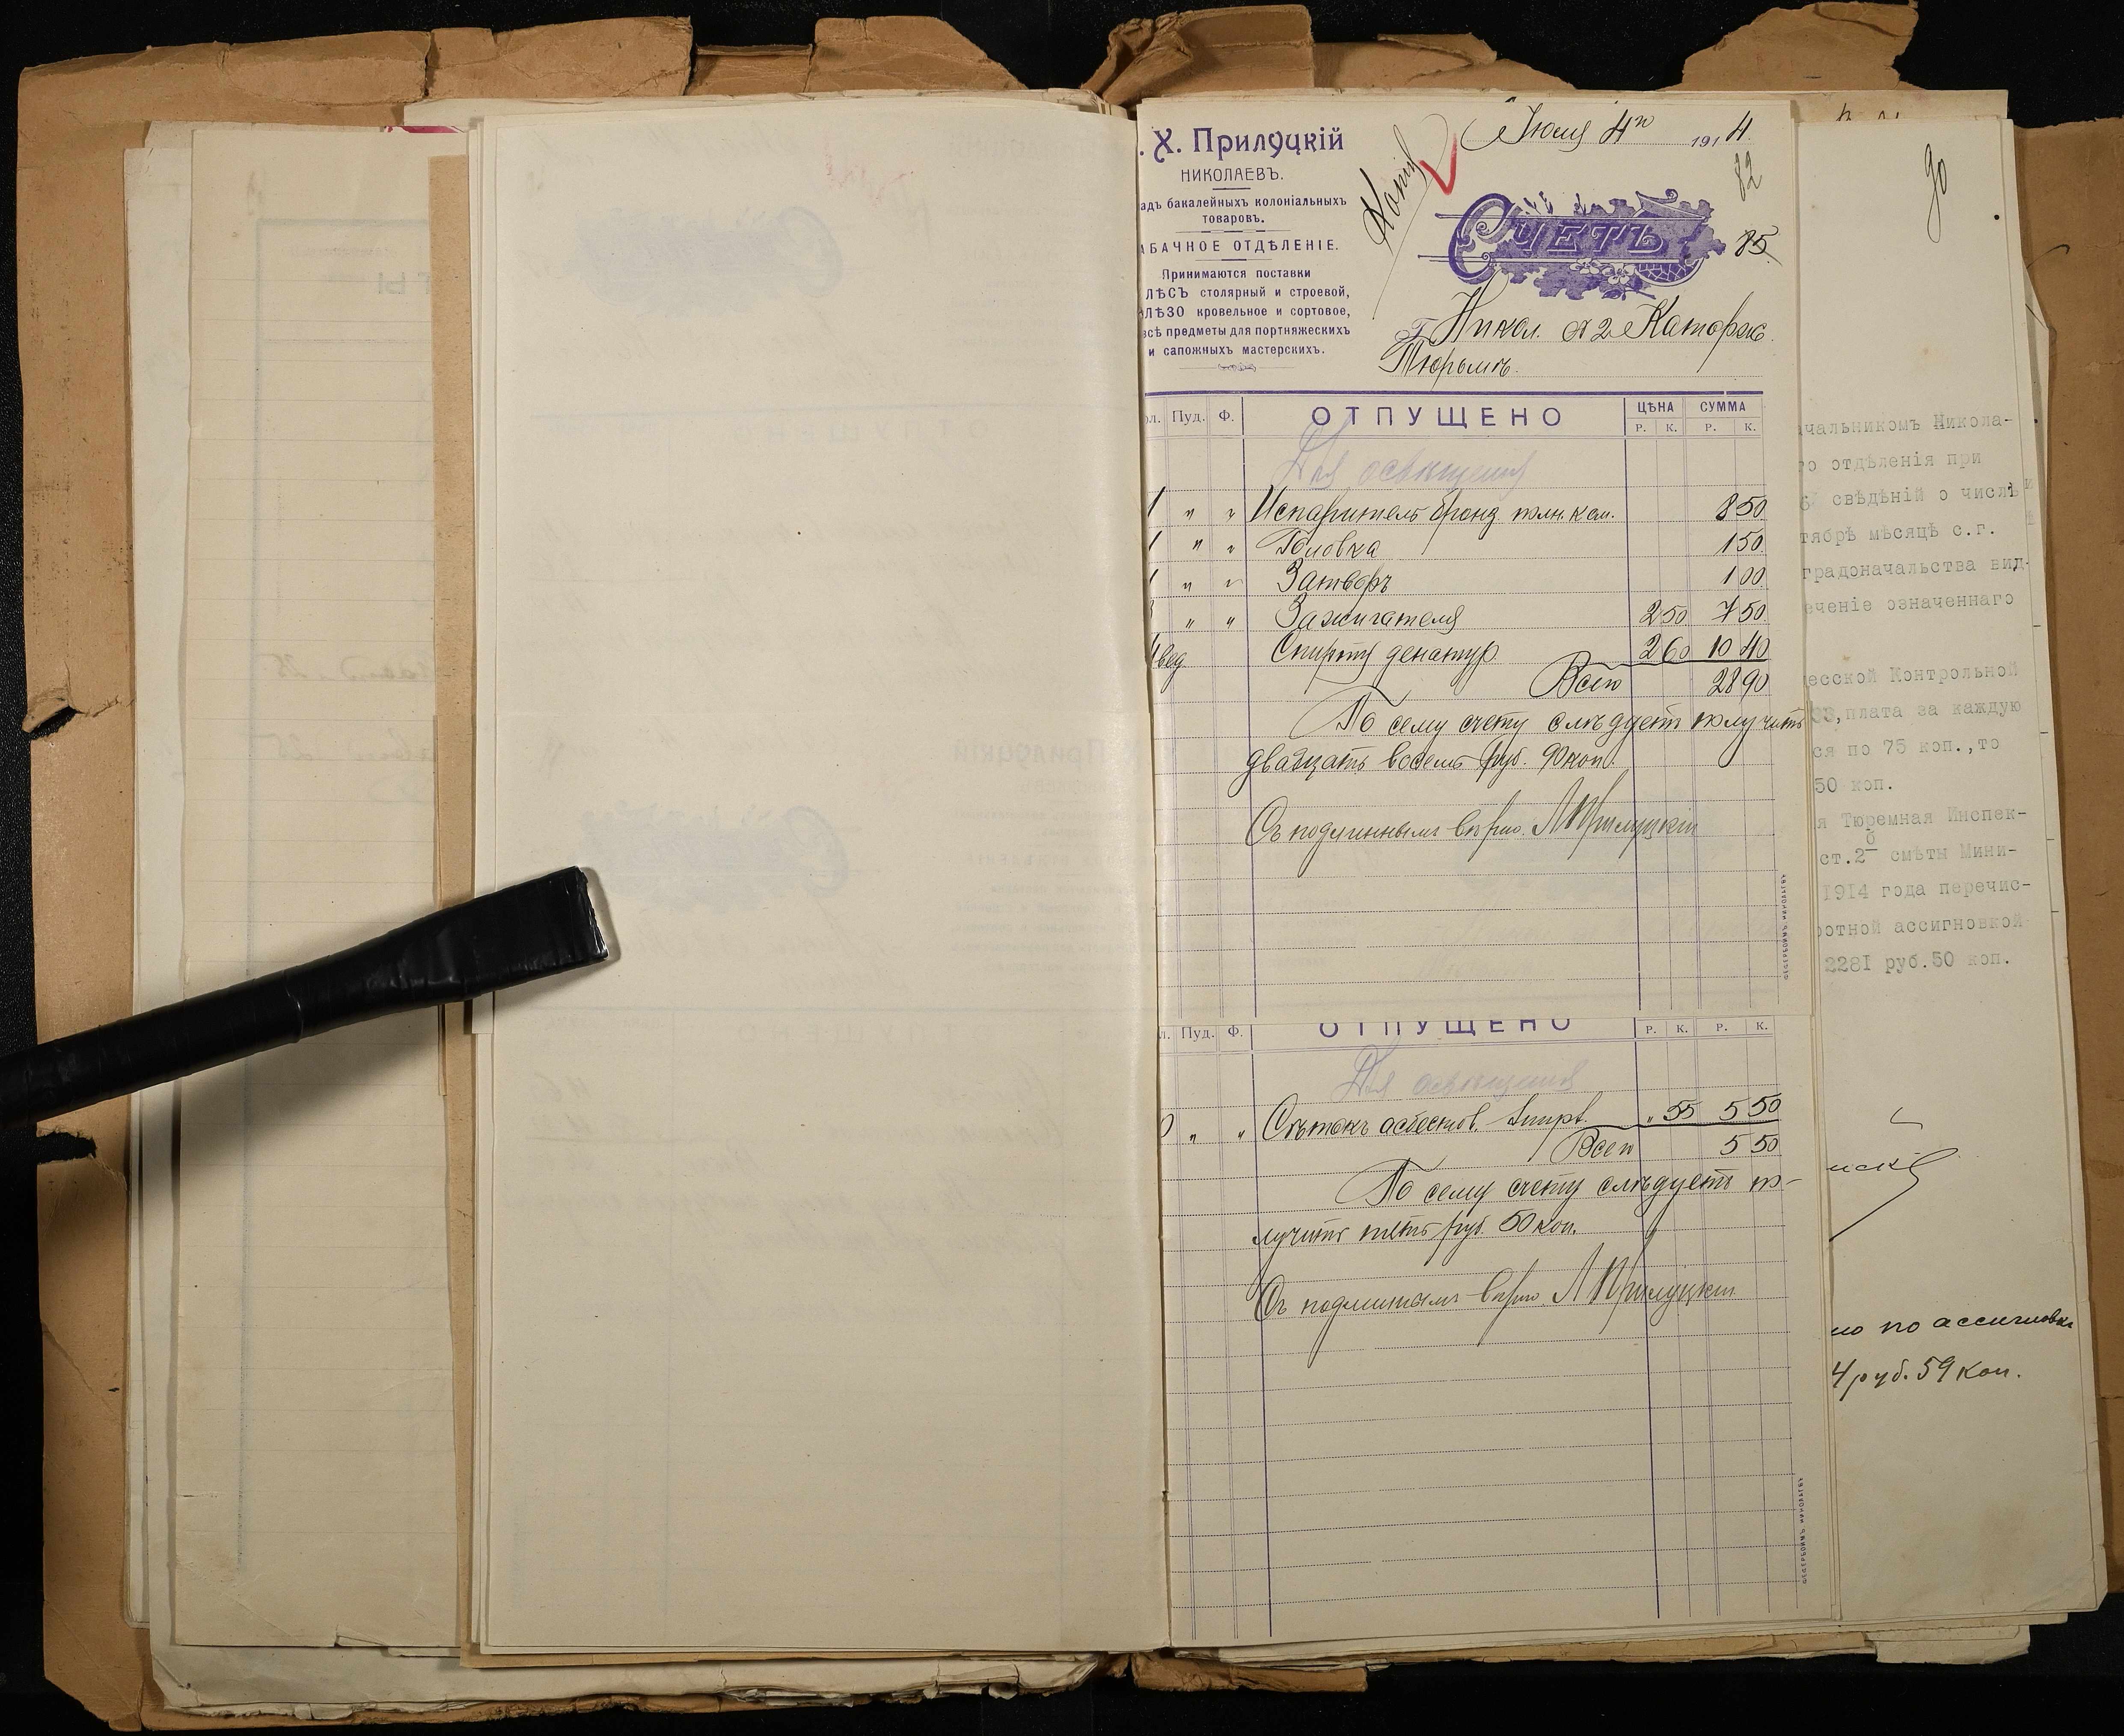 . Х. Прилуцкій
НИКОЛАЕВЪ.
адъ бакалейныхъ колоніальныхъ
товаровъ.
АБАЧНОЕ ОТДѢЛЕНІЕ.
Принимаются поставки
ЛѢСЪ столярный и строевой,
ЛѢЗО кровельное и сортовое,
всѣ предметы для портняжескихъ
и сапожныхъ мастерскихъ.
Копія
Іюля 4го 1914.
82
85
СЧЕТЪ
Г. Никол. № 2 Каторж.
Тюрьмѣ.
ол. Пуд. Ф. ОТПУЩЕНО ЦѢНА СУММА
Р. К. Р. К.
Для освѣщенія
1 " " Испаритель бронз. полн. ком. 8 50
1 " " Головка 1 50
1 " " Затворъ 1 00
3 " " Зажигателя 2 50 7 50
4 вед Спирта денатур 2 60 10 40
Всего 28 90
По сему счету слѣдуетъ получить
двадцать восемь руб. 90 коп.
Съ подлиннымъ вѣрно. Л Прилуцкій
ФЕФЕРБОЙМЪ, НИКОЛАЕВЪ
л. Пуд. Ф. ОТПУЩЕНО Р. К. Р. К.
Для освѣщенія
0 " " Сѣтокъ асбестов. " 55 5 50
Всего 5 50
По сему счету слѣдуетъ по-
лучить пять руб. 50 коп.
Съ подлиннымъ вѣрно. Л Прилуцкій
ФЕФЕРБОЙМЪ, НИКОЛАЕВЪ
90
ачальникомъ Никола-
го отдѣленія при
свѣдѣній о числѣ
тябрѣ мѣсяцѣ с.г.
градоначальства вид-
еченіе означеннаго
есской Контрольной
плата за каждую
ся по 75 коп.,то
50 коп.
я Тюремная Инспек-
ст.2б смѣты Мини-
1914 года перечис-
ротной ассигновкой
2281 руб.50 коп.
но по ассигновкѣ
4 руб. 59 коп.